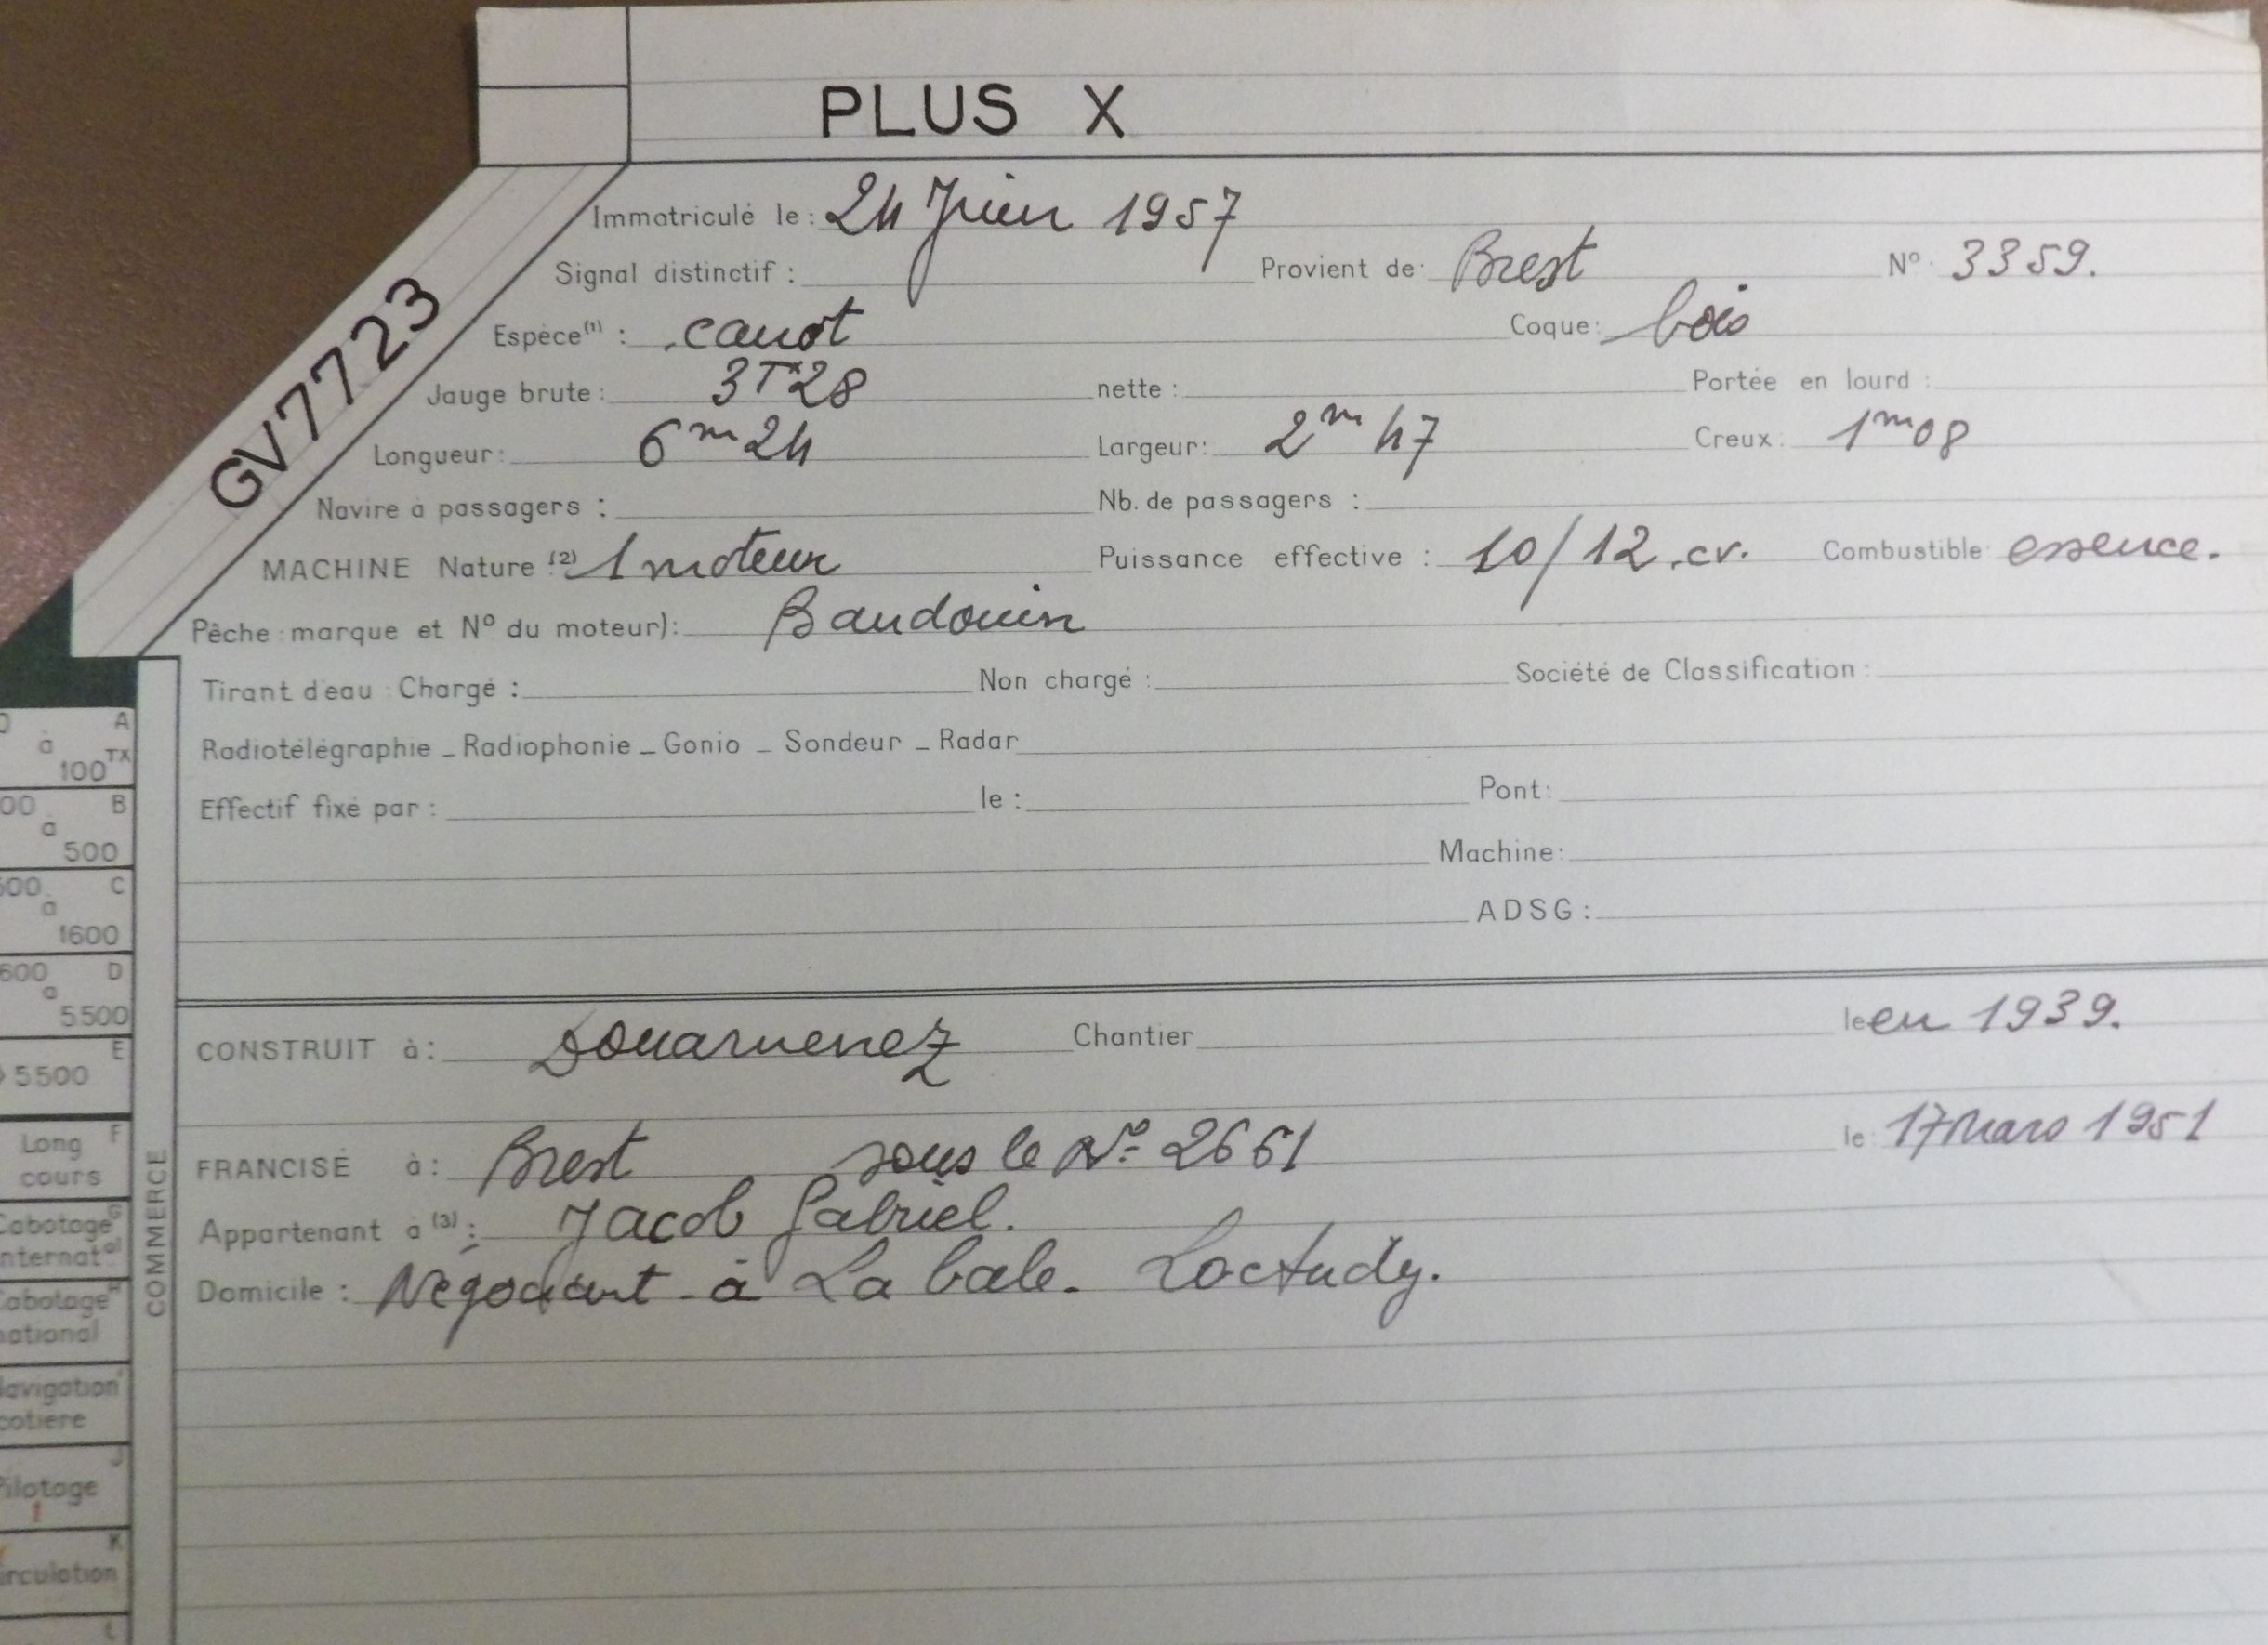 PLUS X
GV7723
Immatriculé le : 24 Juin 1957
Signal distinctif : Provient de : Brest N° 3359.
Espèce (1) : canot Coque : bois
Jauge brute : 3Tx28 nette : Portée en lourd :
Longueur : 6m24 Largeur : 2m47 Creux : 1m08
Navire à passagers : Nb. de passagers :
MACHINE Nature (2) 1 moteur Puissance effective : 10/12 cv. Combustible essence.
Pêche : marque et N° du moteur) : Baudouin
Tirant d'eau : Chargé : Non chargé : Société de Classification :
Radiotélégraphie _ Radiophonie _ Gonio _ Sondeur _ Radar
Effectif fixé par : le : Pont :
Machine :
ADSG :
CONSTRUIT à : Douarnenez Chantier le en 1939.
FRANCISÉ à : Brest sous le N° 2661 le 17 Mars 1951
Appartenant à (3) : Jacob Gabriel.
Domicile : Négociant - à La Cale. Loctudy.
A
à
100 TX
B
à
500
C
à
1600
D
à
5500
E
5500
F
Long
cours
G
Cabotage
internat al
H
Cabotage
national
Navigation
cotiere
J
Pilotage
1
K
irculation
L
COMMERCE